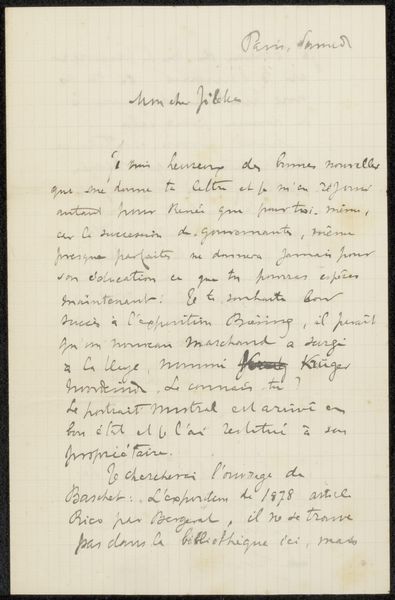 Paris, Samedi
Mon cher Zilcken
Je suis heureux des bonnes nouvelles
que me donne ta lettre et je m'en réjouis
autant pour Renée que pour toi-même,
car la succession de gouvernantes, même
presque parfaites ne donnera jamais pour
son éducation ce que tu pourras espérer
maintenant. Je te souhaite bon
succès à l'exposition Büsing, il paraît
qu'un nouveau marchand a surgi
à La Haye, nommé Krüger
Le connais-tu?
Le portrait Mistral est arrivé en
bon état et je l'ai restitué à son
propriétaire.
Je chercherai l'ouvrage de
Baschet: L'exposition de 1878 article
Rico par Bergerat, il ne se trouve
pas dans la bibliothèque ici, mais